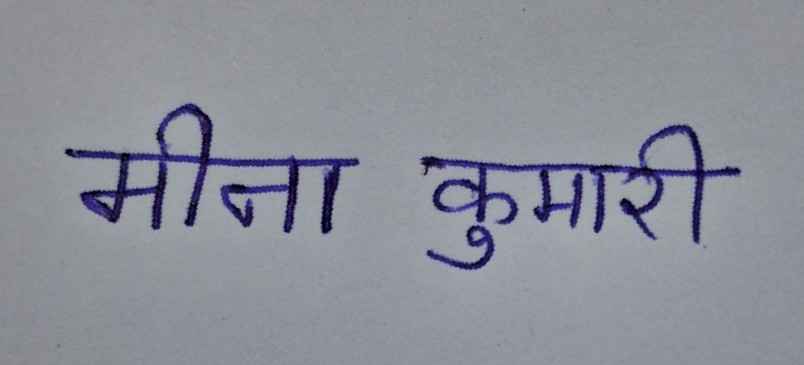 मीना कुमारी